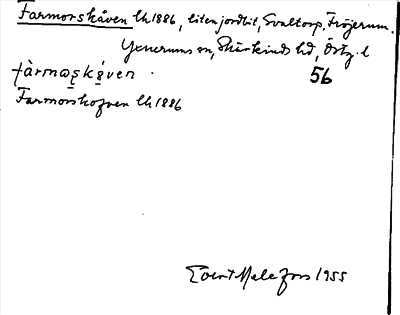 Farmorskåven lk 1886, liten jordlit, Svaltorp, Fröjerum.
Yxnerums sn, Skärkinds hd, Östg. l
fàrmoṣkǻven. 56
Farmorskofven lk 1886
Evert Melefors 1955